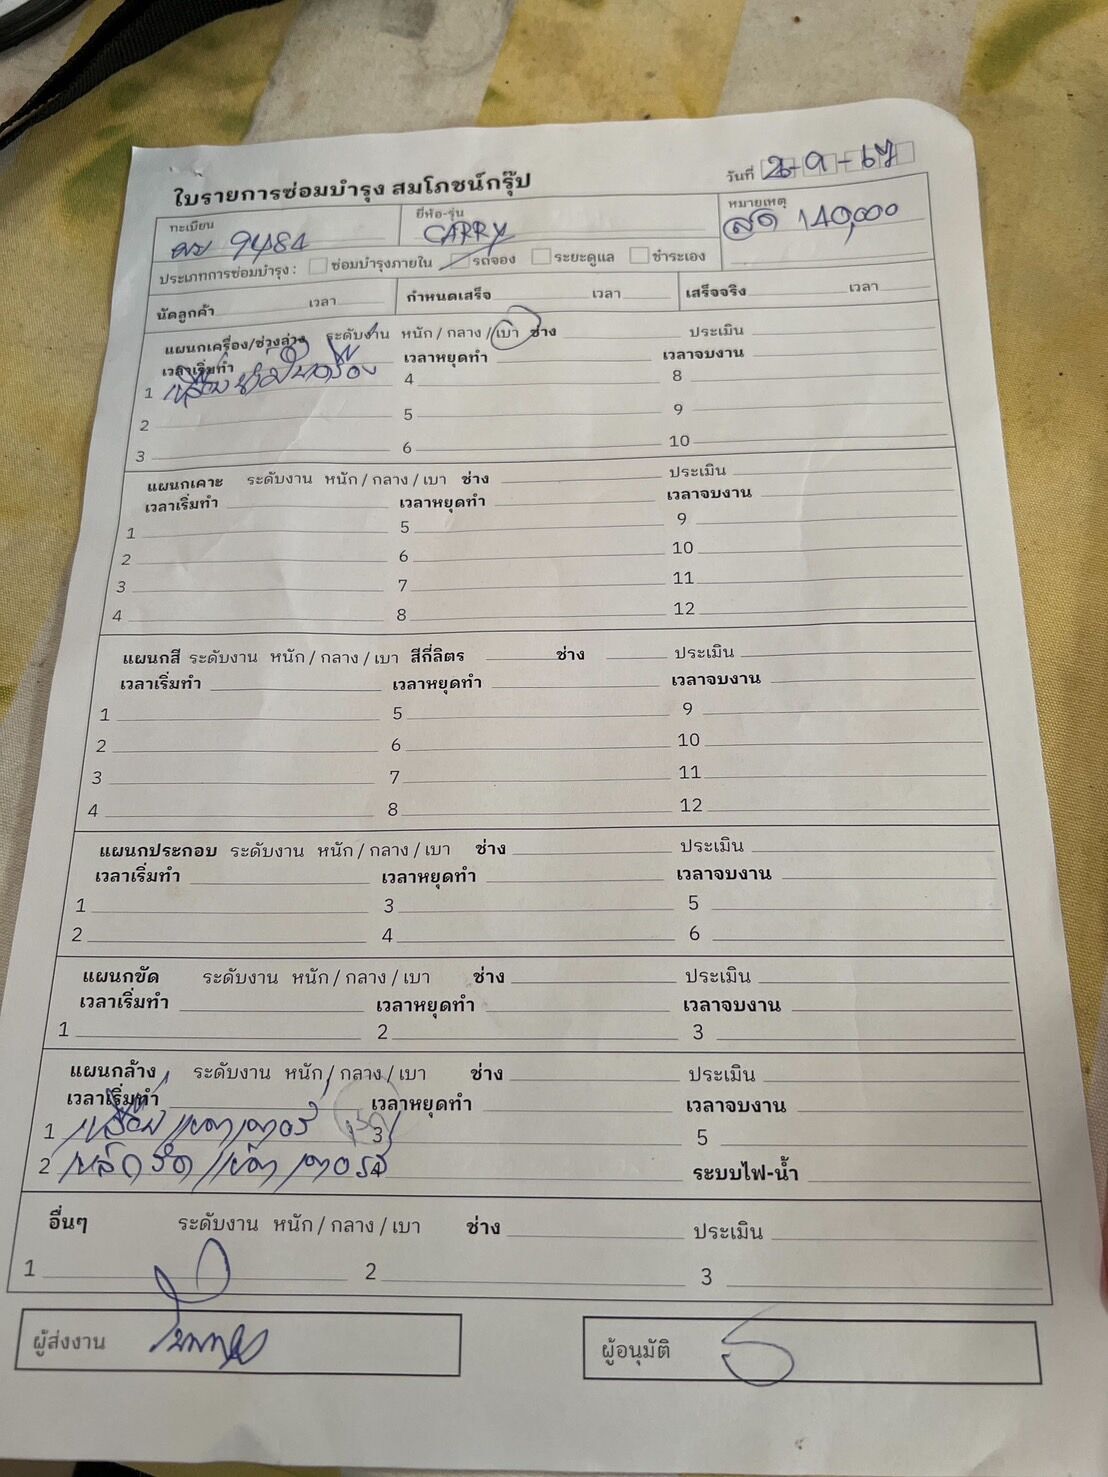 ใบรายการซ่อมบำรุง สมโภชน์กรุ๊ป
วันที่ 26-9-67
ทะเบียน 9484
ยี่ห้อ-รุ่น CARRY
หมายเหตุ สด 140,000
ประเภทการซ่อมบำรุง : ซ่อมบำรุงภายใน รถจอง ระยะดูแล ชำระเอง
นัดลูกค้า เวลา กำหนดเสร็จ เวลา เสร็จจริง เวลา
แผนกเครื่อง/ช่วงล่าง ระดับงาน หนัก / กลาง / เบา ช่าง ประเมิน
เวลาเริ่มทำ เวลาหยุดทำ เวลาจบงาน
1 เปลี่ยนน้ำมันเครื่อง 4 8
2 5 9
3 6 10
แผนกเคาะ ระดับงาน หนัก / กลาง / เบา ช่าง ประเมิน
เวลาเริ่มทำ เวลาหยุดทำ เวลาจบงาน
1 5 9
2 6 10
3 7 11
4 8 12
แผนกสี ระดับงาน หนัก / กลาง / เบา สีกี่ลิตร ช่าง ประเมิน
เวลาเริ่มทำ เวลาหยุดทำ เวลาจบงาน
1 5 9
2 6 10
3 7 11
4 8 12
แผนกประกอบ ระดับงาน หนัก / กลาง / เบา ช่าง ประเมิน
เวลาเริ่มทำ เวลาหยุดทำ เวลาจบงาน
1 3 5
2 4 6
แผนกขัด ระดับงาน หนัก / กลาง / เบา ช่าง ประเมิน
เวลาเริ่มทำ เวลาหยุดทำ เวลาจบงาน
1 2 3
แผนกล้าง ระดับงาน หนัก / กลาง / เบา ช่าง ประเมิน
เวลาเริ่มทำ เวลาหยุดทำ เวลาจบงาน
1 เปลี่ยนแบตเตอรี่ 3 5
2 เหล็กรัดแบตเตอรี่ 4 ระบบไฟ-น้ำ
อื่นๆ ระดับงาน หนัก / กลาง / เบา ช่าง ประเมิน
1 2 3
ผู้ส่งงาน
ผู้อนุมัติ